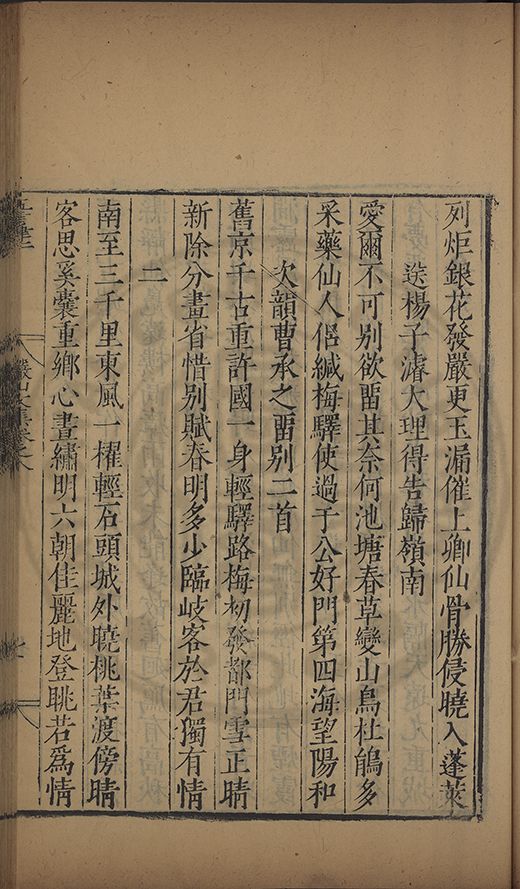 列炬銀花發嚴更玉漏催上卿仙骨勝侵曉入蓬萊
送楊子濬大理得告歸嶺南
愛爾不可別欲畱其奈何池塘春草變山鳥杜鵑多
采藥仙人侶緘梅驛使過于公好門第四海望陽和
次韻曹承之畱別二首
舊京千古重許國一身輕驛路梅初發都門雪正晴
新除分畫省惜別賦春明多少臨岐客於君獨有情
二
南至三千里東風一櫂輕石頭城外曉桃葉渡傍晴
客思奚囊重鄉心晝繡明六朝佳麗地登眺若為情